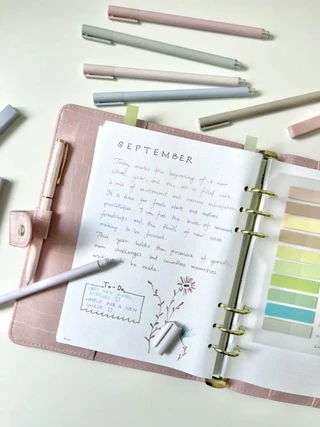 SEPTEMBER
Today marks the beginning of a new
school year, and the air is filled with
a mix of excitement and nervous anticipation.
It is time for fresh starts and endless
possibilities. I can feel the buzz of
friendships and the thrill of new
waiting to be formed.
This year holds the promise of growth,
new challenges and countless memories
to be made.
To-Do
SUPPLIES
APPLY FOR A NEW